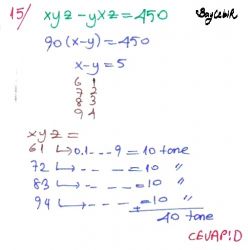 15/ xyz - yxz = 450 BayCebIR
90(x-y) = 450
x-y = 5
6 1
7 2
8 3
9 4
xyz =
61 ↳ 0.1...9 = 10 tane
72 ↳ - - - = 10 "
83 ↳ - - - = 10 "
94 ↳ - - - = 10 "
+
40 tane
CEVAP:D